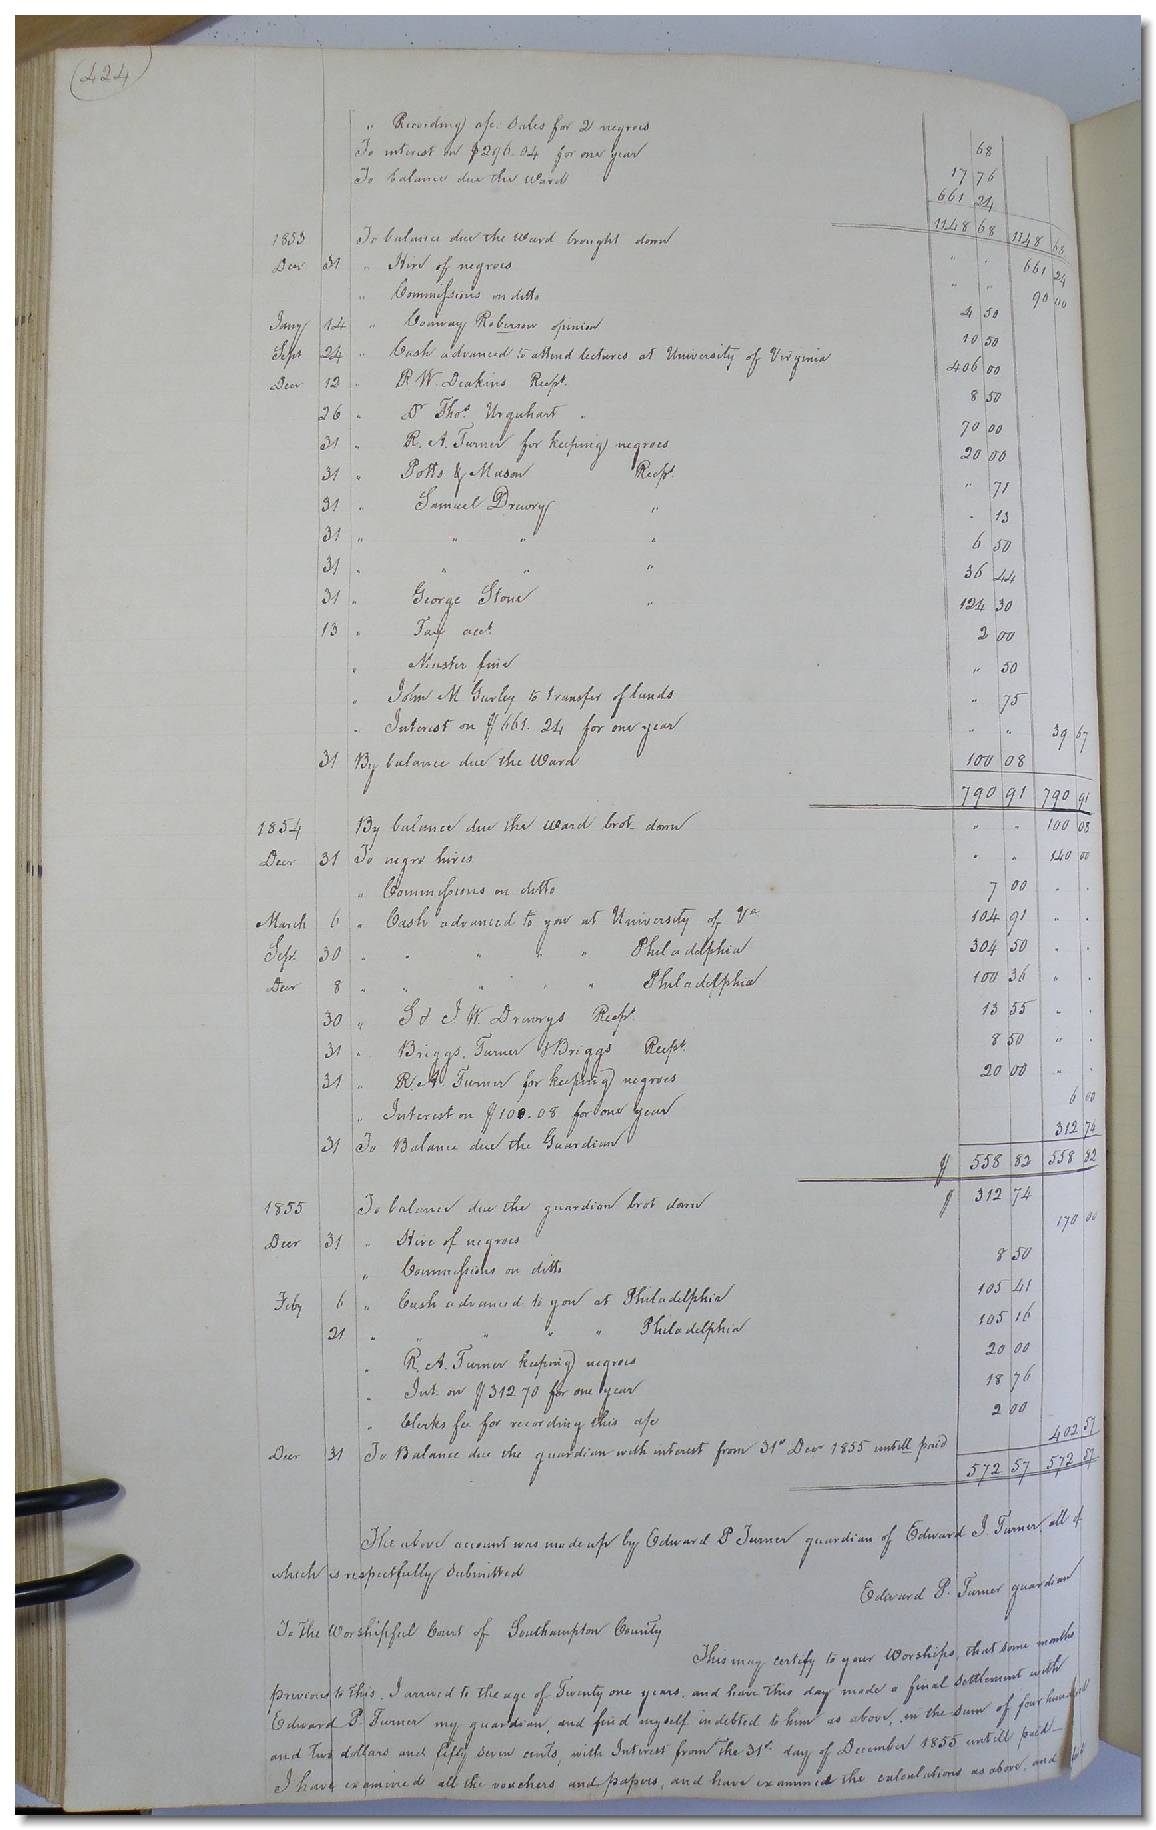 424
" Recording a/c Sales for 2 negroes 68
To interest on $296.04 for one year 17 76
To balance due the Ward 661 24
1148 68 1148 68
1853 To balance due the Ward brought down " " 661 24
Decr 31 " Hire of negroes " " 90 00
" Commissions on ditto 4 50
Jany 14 " Conway Roberson opinion 10 50
Sept 24 " Cash advanced to attend lectures at University of Virginia 406 00
Decr 12 " R W. Deakins Recpt. 8 50
26 " Dr Thos. Urquhart " 70 00
31 " R. A. Turner for keeping negroes 20 00
31 " Potts & Mason Recpt. " 71
31 " Samuel Drewry " " 13
31 " " " " 6 50
31 " " " " 36 44
31 " George Stone " 124 30
13 " Tax acct. 2 00
" Muster fine " 50
" John M Gurley to transfer of lands " 75
" Interest on $661.24 for one year " " 39 67
31 By balance due the Ward 100 08
790 91 790 91
1854 By balance due the Ward brot- down " " 100 08
Decr 31 To negro hires " " 140 00
" Commissions on ditto 7 00 " "
March 6 " Cash advanced to you at University of Va 104 91 " "
Sept 30 " " " " " Philadelphia 304 50 " "
Decr 8 " " " " " Philadelphia 100 36 " "
30 " S & J W. Drewrys Recpt. 13 55 " "
31 " Briggs, Turner & Briggs Recpt. 8 50 " "
31 " R. A Turner for keeping negroes 20 00 " "
" Interest on $100.08 for one year 6 00
31 To Balance due the Guardian 312 74
$ 558 82 558 82
1855 To balance due the guardian brot down $ 312 74
Decr 31 " Hire of negroes 170 00
" Commissions on ditto 8 50
Feby 6 " Cash advanced to you at Philadelphia 105 41
21 " " " " " Philadelphia 105 16
" R. A. Turner keeping negroes 20 00
" Int. on $312 70 for one year 18 76
" Clerks fee for recording this a/c 2 00
Decr 31 To Balance due the guardian with interest from 31st Decr 1855 untill paid 402 57
572 57 572 57
The above account was made up by Edward P Turner guardian of Edward J. Turner, all of
which is respectfully submitted
Edward P. Turner guardian
To the Worshipful Court of Southampton County
This may certify to your Worships, that some months
previous to this, I arrived to the age of Twenty one years, and have this day made a final settlement with
Edward P. Turner my guardian, and find myself indebted to him as above, in the sum of four hundred
and two dollars and fifty seven cents, with Interest from the 31st day of December 1855 untill paid—
I have examined all the vouchers and papers, and have examined the calculations as above, and